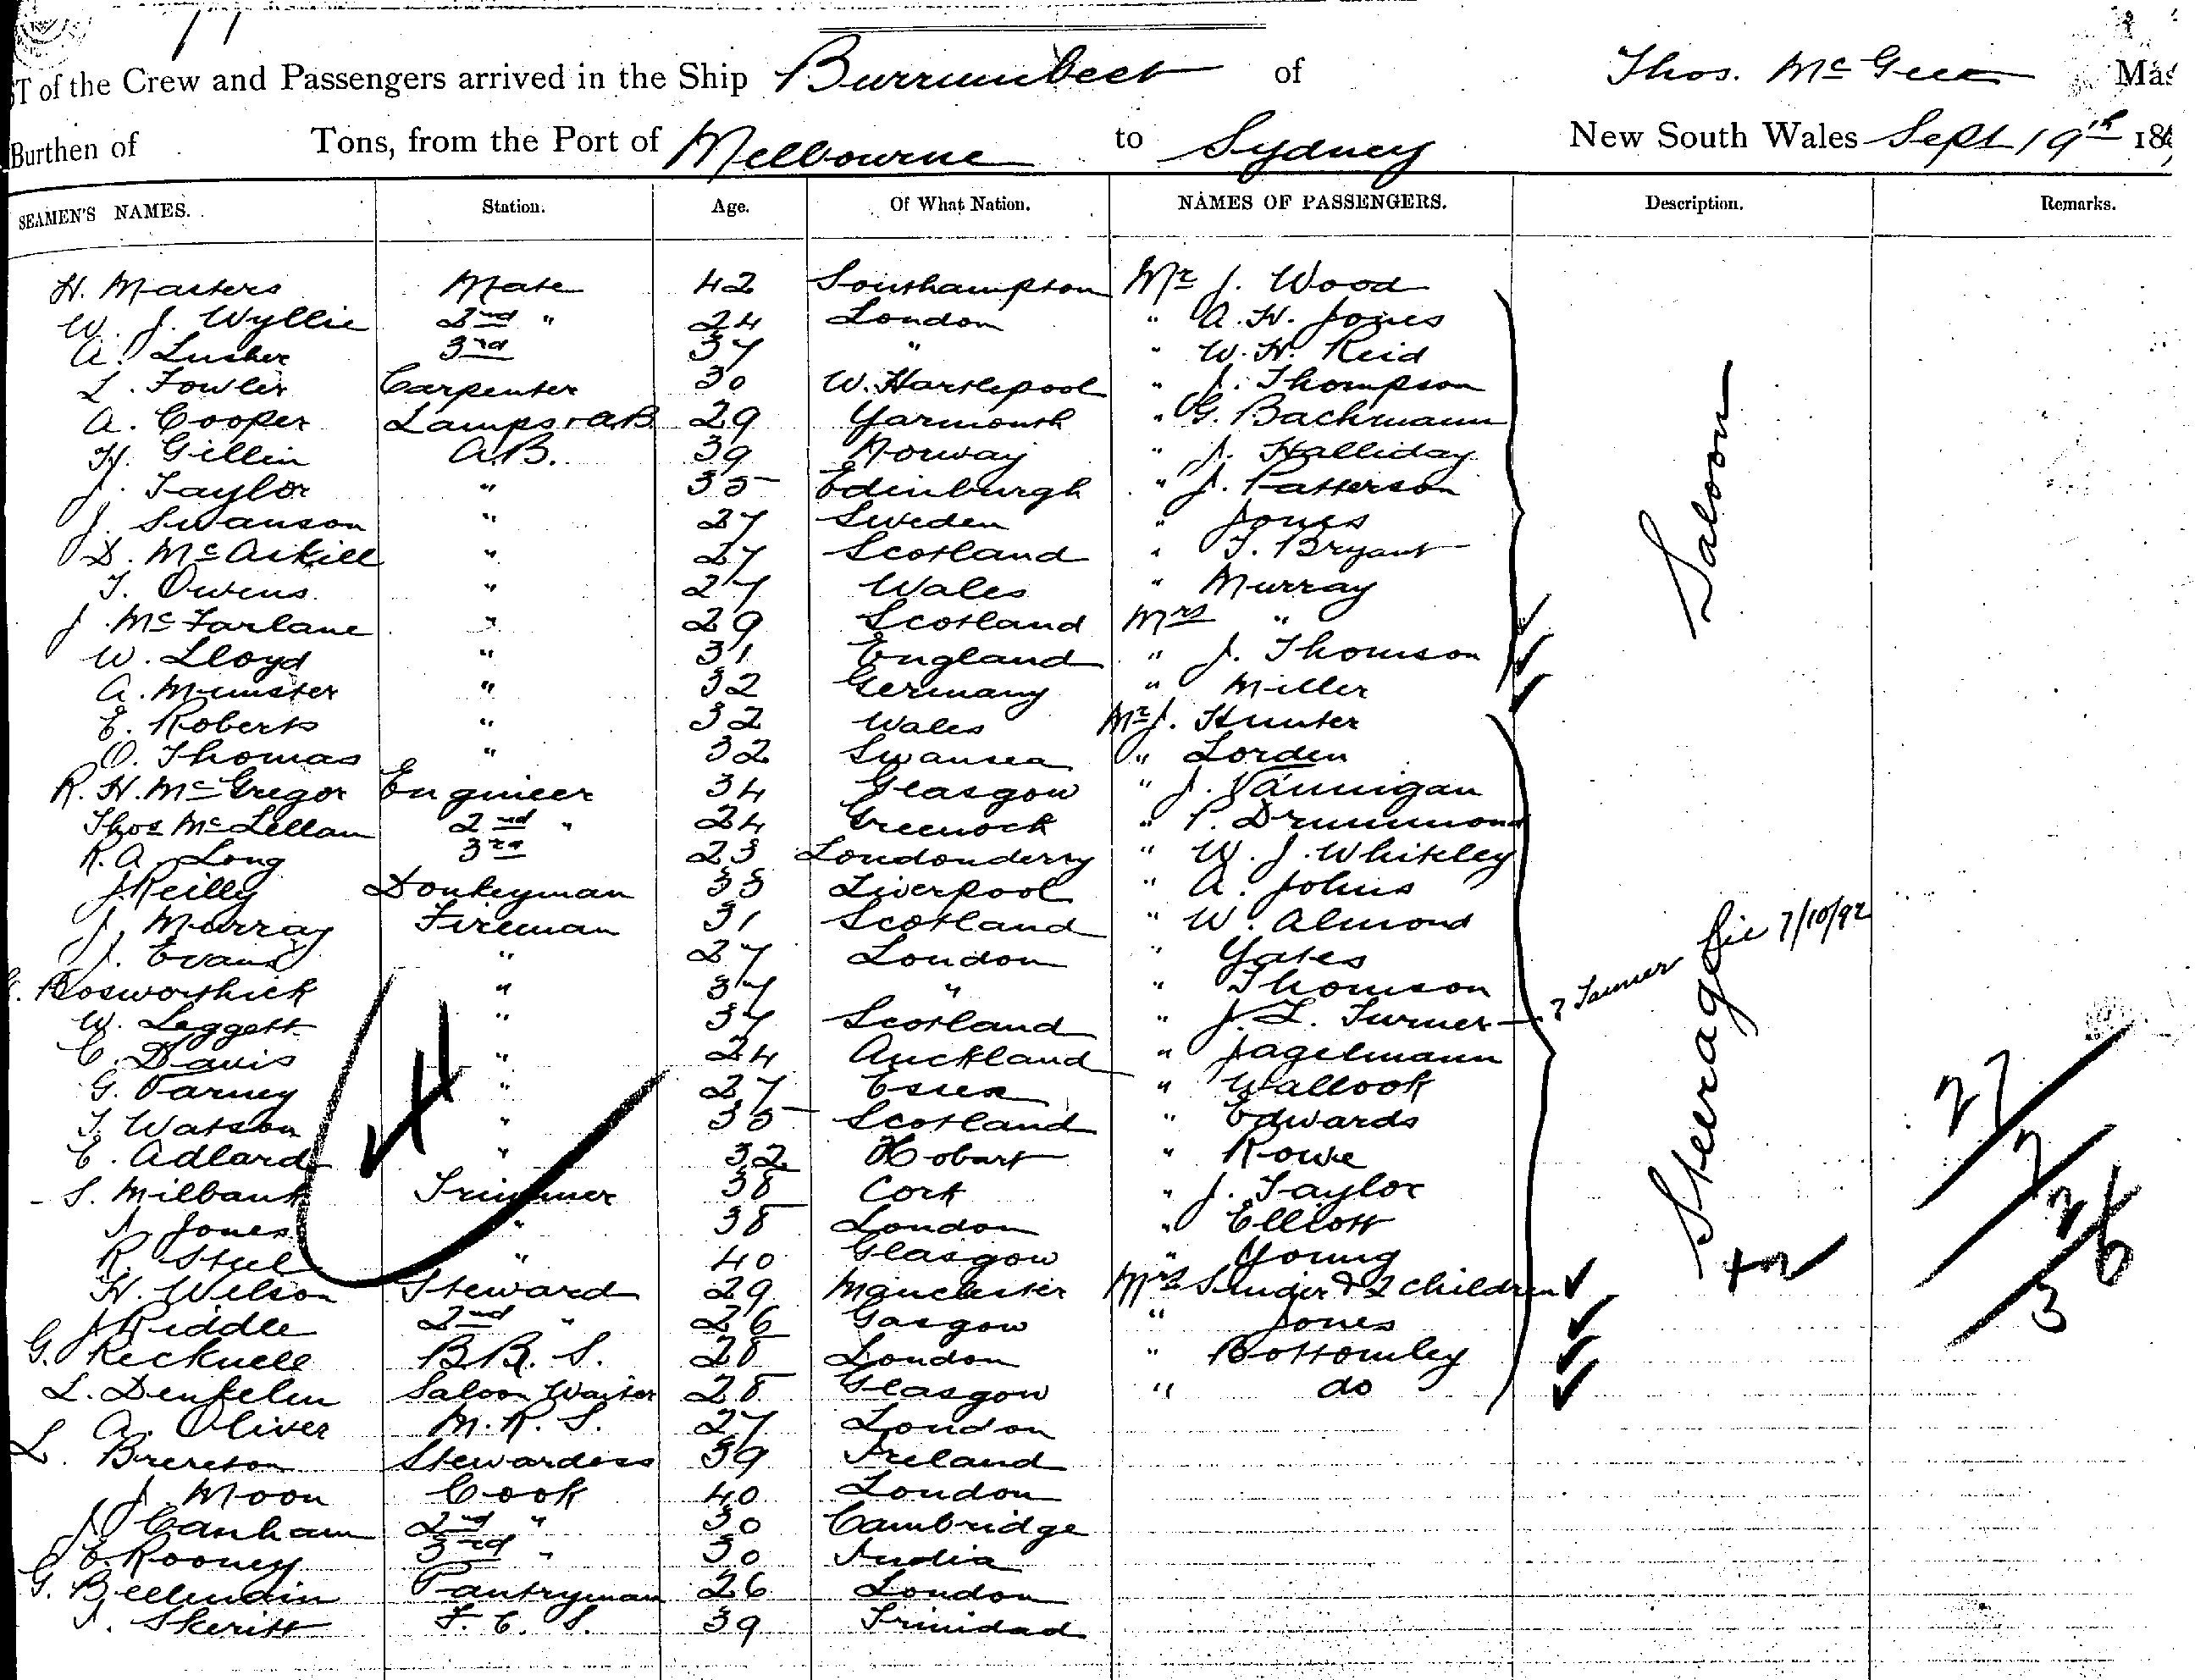 71
ST of the Crew and Passengers arrived in the Ship Burrumbeet of Thos. McGee Mas
Burthen of Tons, from the Port of Melbourne to Sydney New South Wales Sept 19th 18
SEAMEN'S NAMES. Station. Age. Of What Nation. NAMES OF PASSENGERS. Description. Remarks.
H. Masters Mate 42 Southampton Mr J. Wood
W. J. Wyllie 2nd " 24 London " A. H. Jones
A. Lusher 3rd 37 " " W. H. Reid
L. Fowler Carpenter 30 W. Hartlepool " J. Thompson
A. Cooper Lamps & AB 29 Yarmouth " G. Bachmann
H. Gillin A.B. 39 Norway " J. Halliday
J. Taylor " 35 Edinburgh " J. Patterson
J. Swanson " 27 Sweden " Jones
D. McAskill " 27 Scotland " T. Bryant
T. Owens " 27 Wales " Murray
J. McFarlane " 29 Scotland Mrs "
W. Lloyd " 31 England " J. Thomson
A. Munster " 32 Germany " Miller
Saloon
E. Roberts " 32 Wales Mr J. Hunter
O. Thomas " 32 Swansea " Lorden
R. H. McGregor Engineer 34 Glasgow " J. Vannigan
Thos McLellan 2nd " 24 Greenock " P. Drummond
R. A. Long 3rd 23 Londonderry " W. J. Whitley
J Reilly Donkeyman 33 Liverpool " A. Johns
J. Murray Fireman 31 Scotland " W. Almond
J. Evans " 27 London " Yates
Bosworthick " 37 " " Thomson
W. Leggett " 37 Scotland " J. L. Turner — ? Tanner 7/10/92
C. Davis " 24 Auckland " Jagelmann
G. Varney " 27 Essex " Wallook
T. Watson " 35 Scotland " Edwards
E. Adlard " 32 Hobart " Rowe
S. Milbank Trimmer 38 Cork " J. Taylor
J. Jones " 38 London " Elliott
R. Steel " 40 Glasgow " Young
H. Wilson Steward 29 Manchester Mrs & 2 children
J Riddle 2nd " 26 Gasgow " Jones
G. Recknell B.R. S. 28 London " Bottomley
L. Saloon Waiter 28 Glasgow " do
Steerage
+2
A. Oliver M. R. S. 27 London
L. Brereton Stewardess 39 Ireland
J. Moon Cook 40 London
J Canham 2nd " 30 Cambridge
E. Rooney 3rd " 30 India
G. Pantryman 26 London
J. Skeritt F. C. S. 39 Trinidad